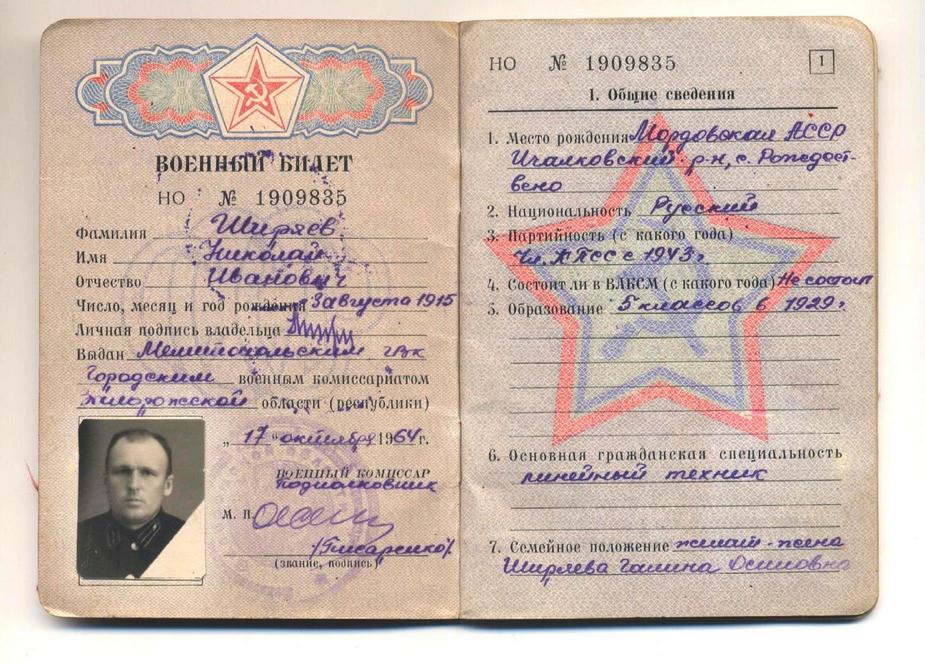 ВОЕННЫЙ БИЛЕТ
НО № 1909835
Фамилия Ширяев
Имя Николай
Отчество Иванович
Число, месяц и год рождения 3 августа 1915
Личная подпись владельца
Выдан Мелитопольским гвк
городским военным комиссариатом
Запорожской области (республики)
„17" октября 1964 г.
ВОЕННЫЙ КОМИССАР
подполковник
М. П.
/Писаренко/
(звание, подпись)
НО № 1909835 1
1. Общие сведения
1. Место рождения Мордовская АССР
Ичалковский р-н, с. Рождест-
вено
2. Национальность Русский
3. Партийность (с какого года)
Чл. КПСС с 1943 г.
4. Состоит ли в ВЛКСМ (с какого года) Не состоит
5. Образование 5 классов в 1929 г.
6. Основная гражданская специальность
линейный техник
7. Семейное положение женат - жена
Ширяева Галина Осиповна